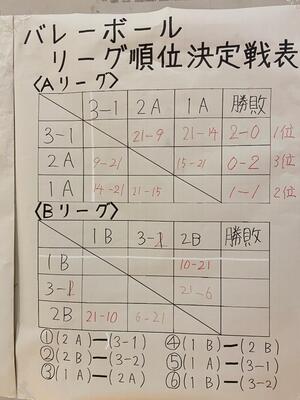 バレーボール
リーグ順位決定戦表
〈Aリーグ〉
3-1 2A 1A 勝敗
3-1 21-9 21-14 2-0 1位
2A 9-21 15-21 0-2 3位
1A 14-21 21-15 1-1 2位
〈Bリーグ〉
1B 3-2 2B 勝敗
1B 10-21
3-2 21-6
2B 21-10 6-21
①(2A)ー(3-1) ④(1B)ー(2B)
②(2B)ー(3-2) ⑤(1A)ー(3-1)
③(1A)ー(2A) ⑥(1B)ー(3-2)